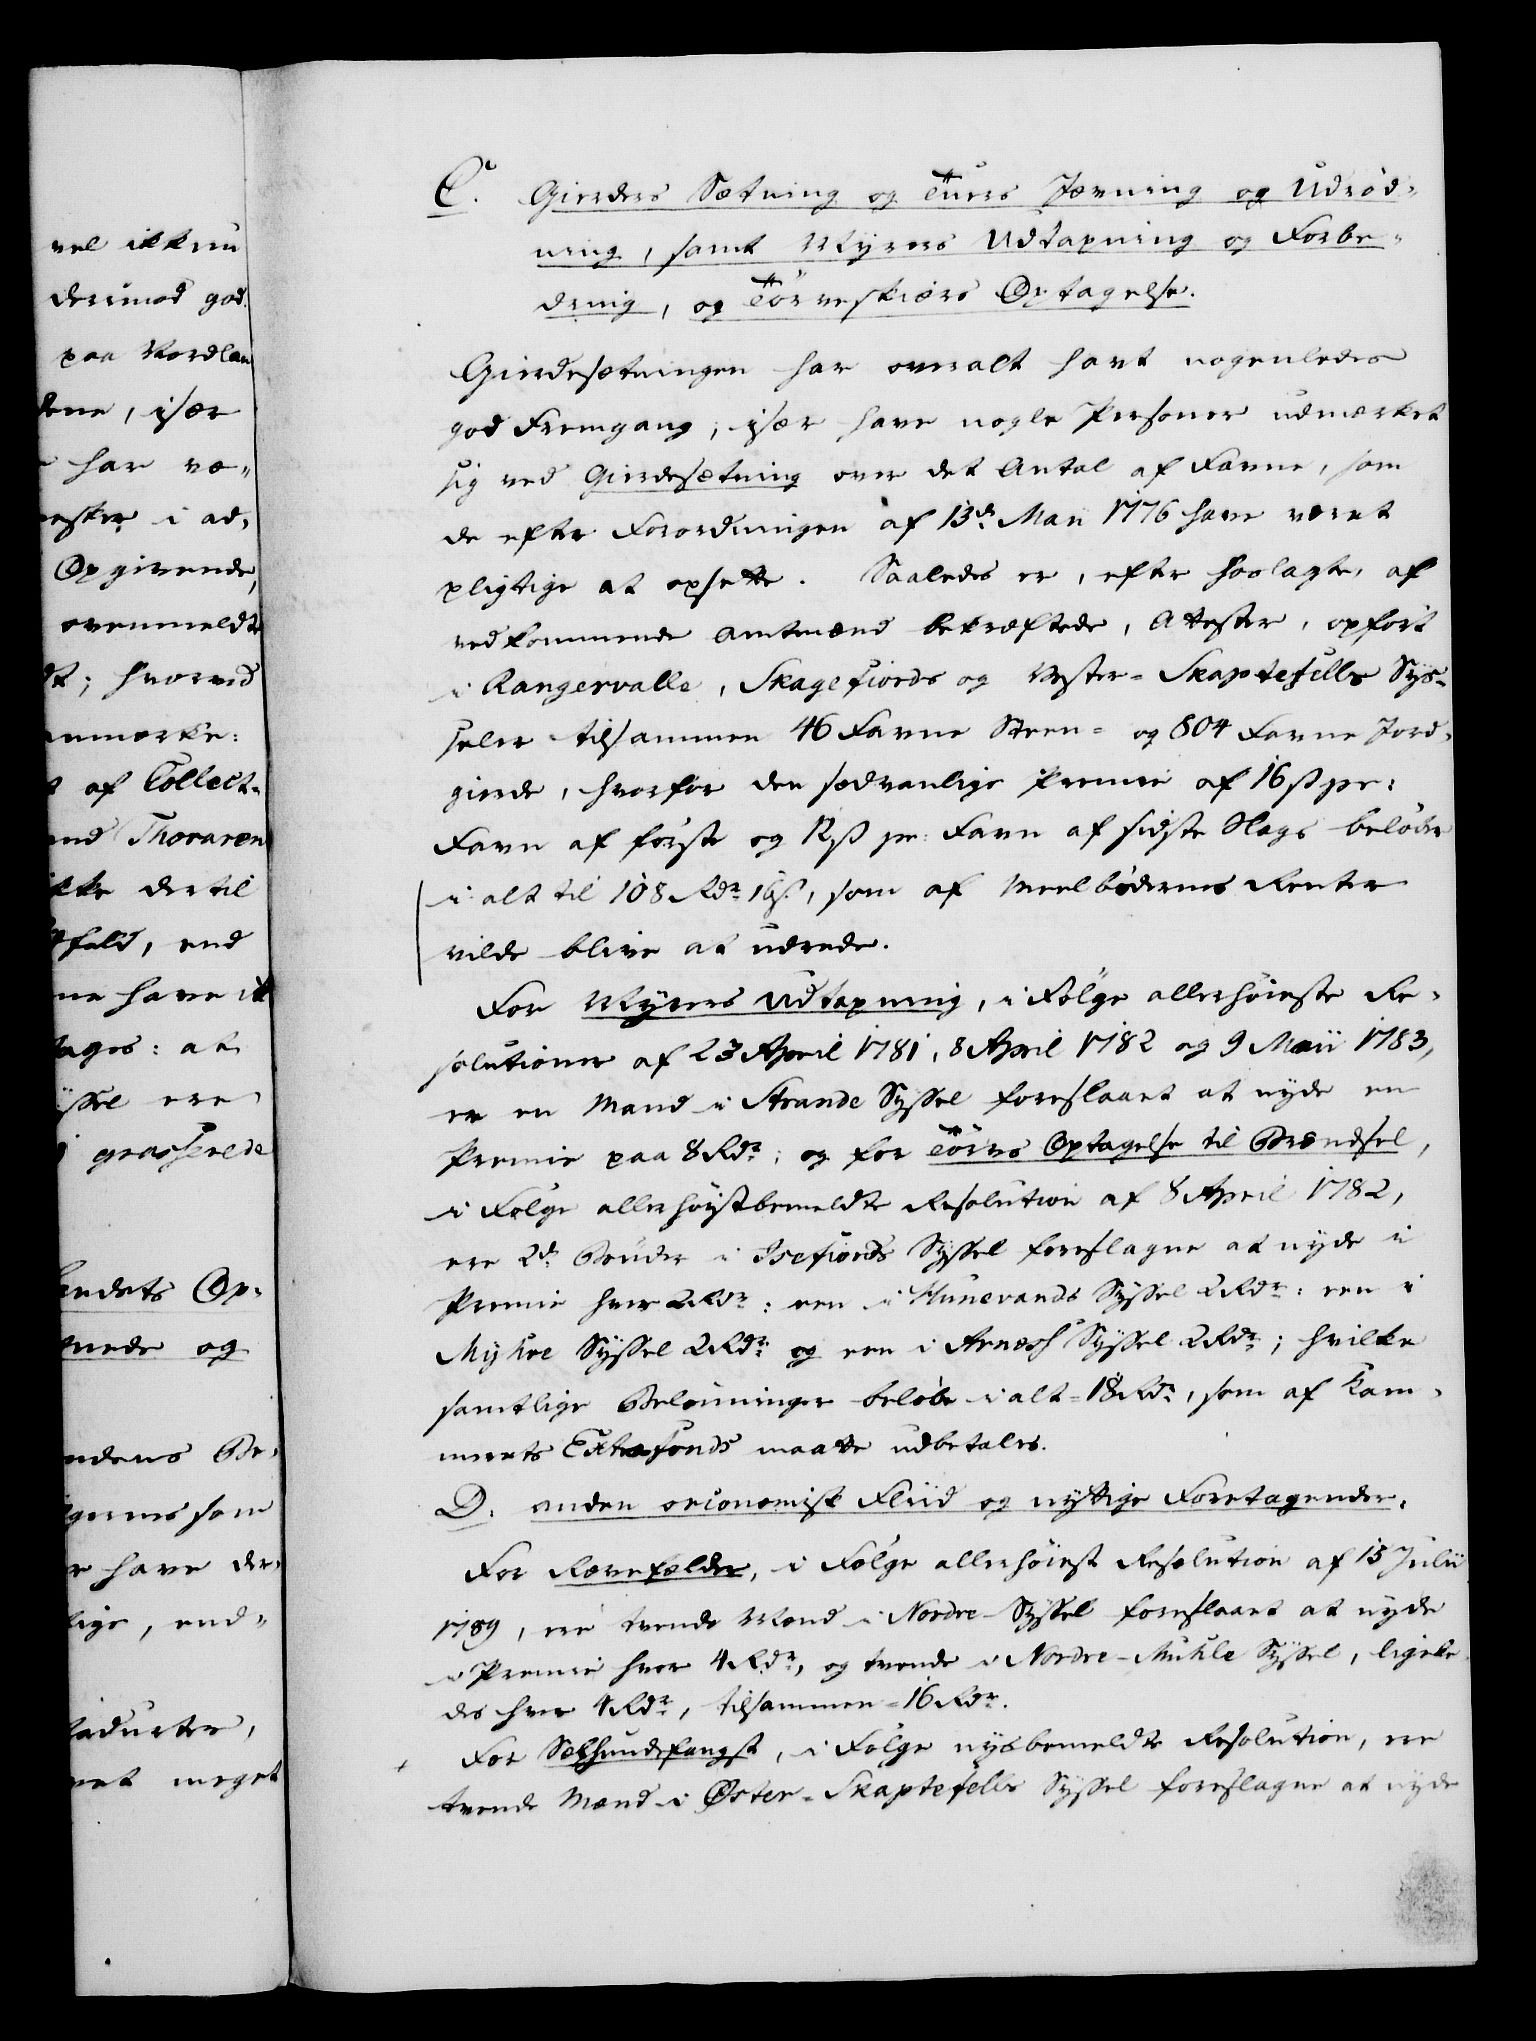 vel ikkun
derimod god
paa Nordlan
dene, især
har væ-
nesker i ad-
Opgivende,
ovenmeldte
dt; hvorved
anmærke:
af Collect-
and Thoraren
ikke dertil
dfald, end
ne have it
tages: at
ÿssel ere
grasserede
Landets Op-
nede og
ndens Be-
gernes som
r have der-
lige, end-
ladurter,
vet meget
C. Gierders Sætning og Tuers Jævning og Udrød-
ning, samt Myrers Udtapning og Forbe-
dring, og Törveskiærs Optagelse.
Gierdesætningen har overalt havt nogenledes
god Fremgang; især have nogle Personer udmærket
sig ved Gierdesætning over det Antal af Favne, som
de efter Forordningen af 13de Maii 1776 have været
pligtige at opsette. Saaledes er, efter hoslagte, af
vedkommende Amtmænd bekræftede, Attester, opfört
i Rangervalle, Skagefiords og Vester-Skaptefells Sys-
seler tilsammen 46 Favne Steen- og 804 Favne Jord-
gierde, hvorfor den sædvanlige Premie af 16 ß pr:
Favn af første og 12 ß pr: Favn af sidste Slags beløber
i alt til 108 Rdr 16 ß, som af Meelbödernes Renter
vilde blive at udrede.
For Myrers Udtapning, i Følge allerhöieste Re-
solutioner af 23 April 1781, 8 April 1782 og 9 Maii 1783,
er en Mand i Strande Syssel foreslaaet at nyde en
Premie paa 8 Rdr; og for Törvs Optagelse til Brændsel,
i Følge allerhöystbemeldte Resolution af 8 April 1782,
ere 2de Bönder i Isefiords Syssel foreslagne at nyde i
Premie hver 2 Rdr: een i Hunevands Syssel 2 Rdr: een i
Myhre Syssel 2 Rdr og een i Arness Syssel 2 Rdr; hvilke
samtlige Belønninger beløbe i alt = 18 Rdr, som af Kam-
merets Extrafonds maatte udbetales.
D. anden oeconomisk Fliid og nyttige Foretagender.
For Rævefælder, i Følge allerhöiest Resolution af 15 Julii
1789, ere tvende Mænd i Nordre-Syssel foreslaaet at nyde
i Premie hver 4 Rdr, og tvende i Nordre-Muhle Syssel, ligele-
des hver 4 Rdr, tilsammen = 16 Rdr.
For Sælhundefangst, i Følge nysbemeldte Resolution, ere
tvende Mænd i Øster-Skaptefells Syssel foreslagne at nyde